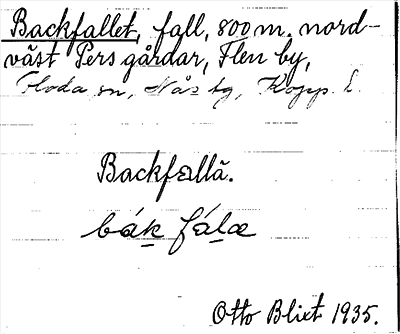 Backfallet, fall, 800 m. nord-
väst Pers gårdar, Flen by,
Floda sn, Nås tg, Kopp. l.
Backfallä.
bák fálæ
Otto Blixt 1935.